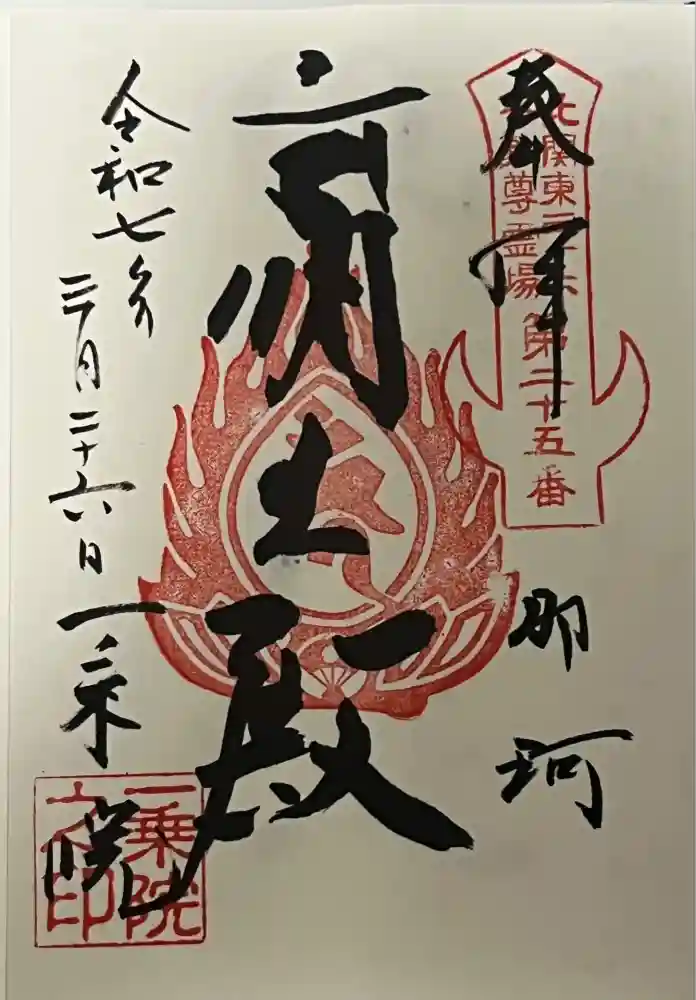 奉拝
北関東三十六
不動尊霊場
第二十五番
那珂
明王殿
令和七年
三月二十六日
一乗院
一乗院
之印